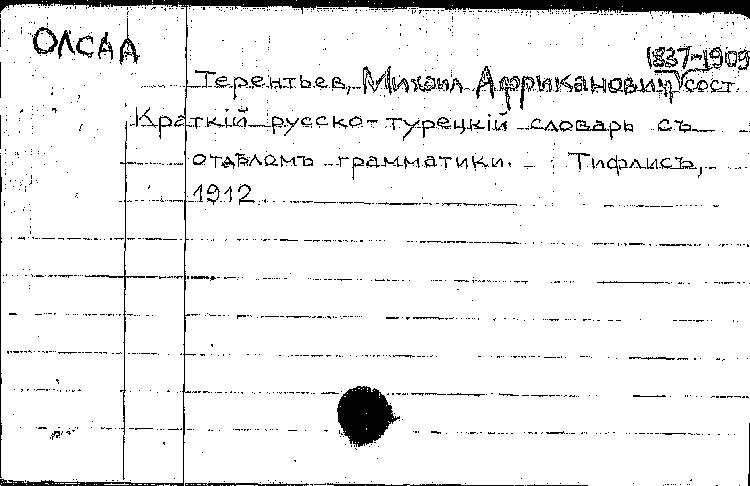 ОЛСАА
1837-1909
Терентьев, Михаил Африканович, сост.
Краткій русско-турецкій словарь съ
отдѣломъ грамматики. Тифлисъ,
1912